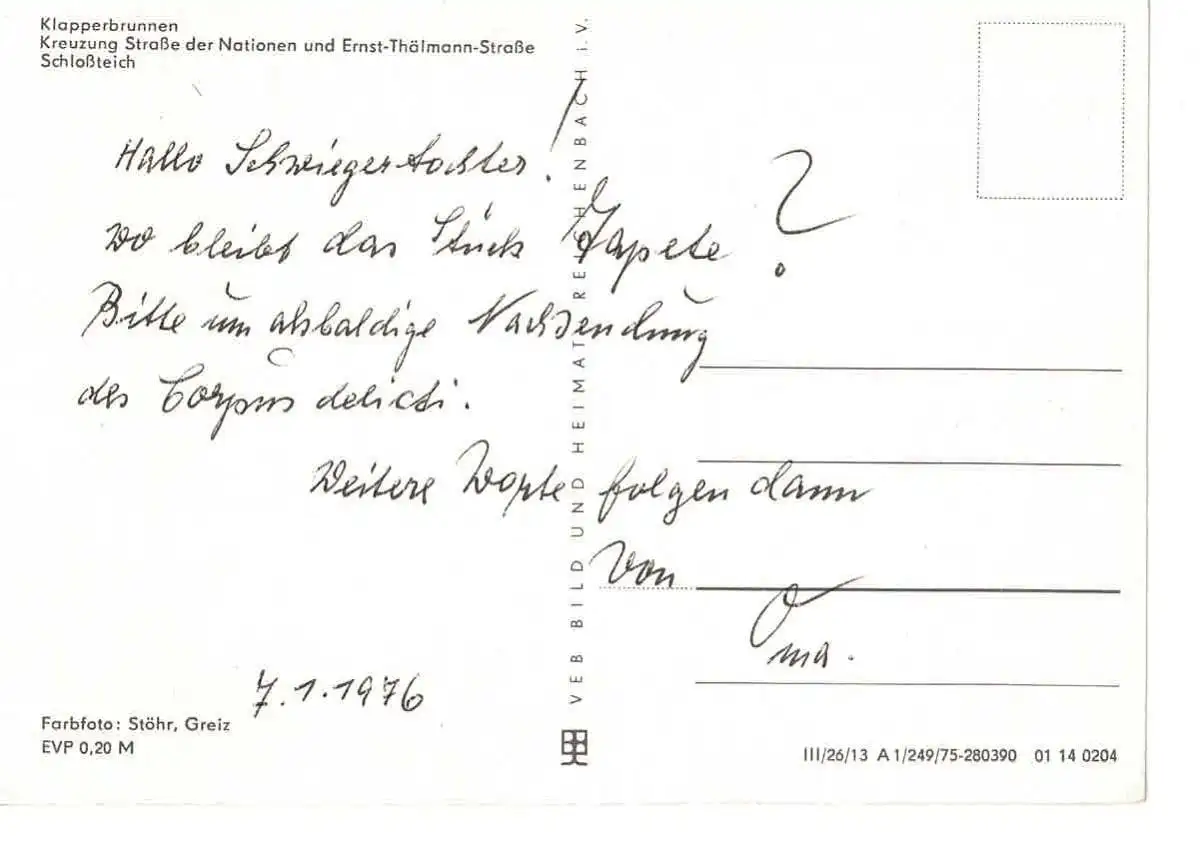 Klapperbrunnen
Kreuzung Straße der Nationen und Ernst-Thälmann-Straße
Schloßteich
Hallo Schwiegertochter!
Wo bleibt das Stück Tapete?
Bitte um alsbaldige Nachsendung
des Corpus delicti.
Weitere Worte folgen dann
von
Oma.
7.1.1976
Farbfoto: Stöhr, Greiz
EVP 0,20 M
VEB BILD UND HEIMAT REICHENBACH i.V.
III/26/13 A 1/249/75-280390 01 14 0204